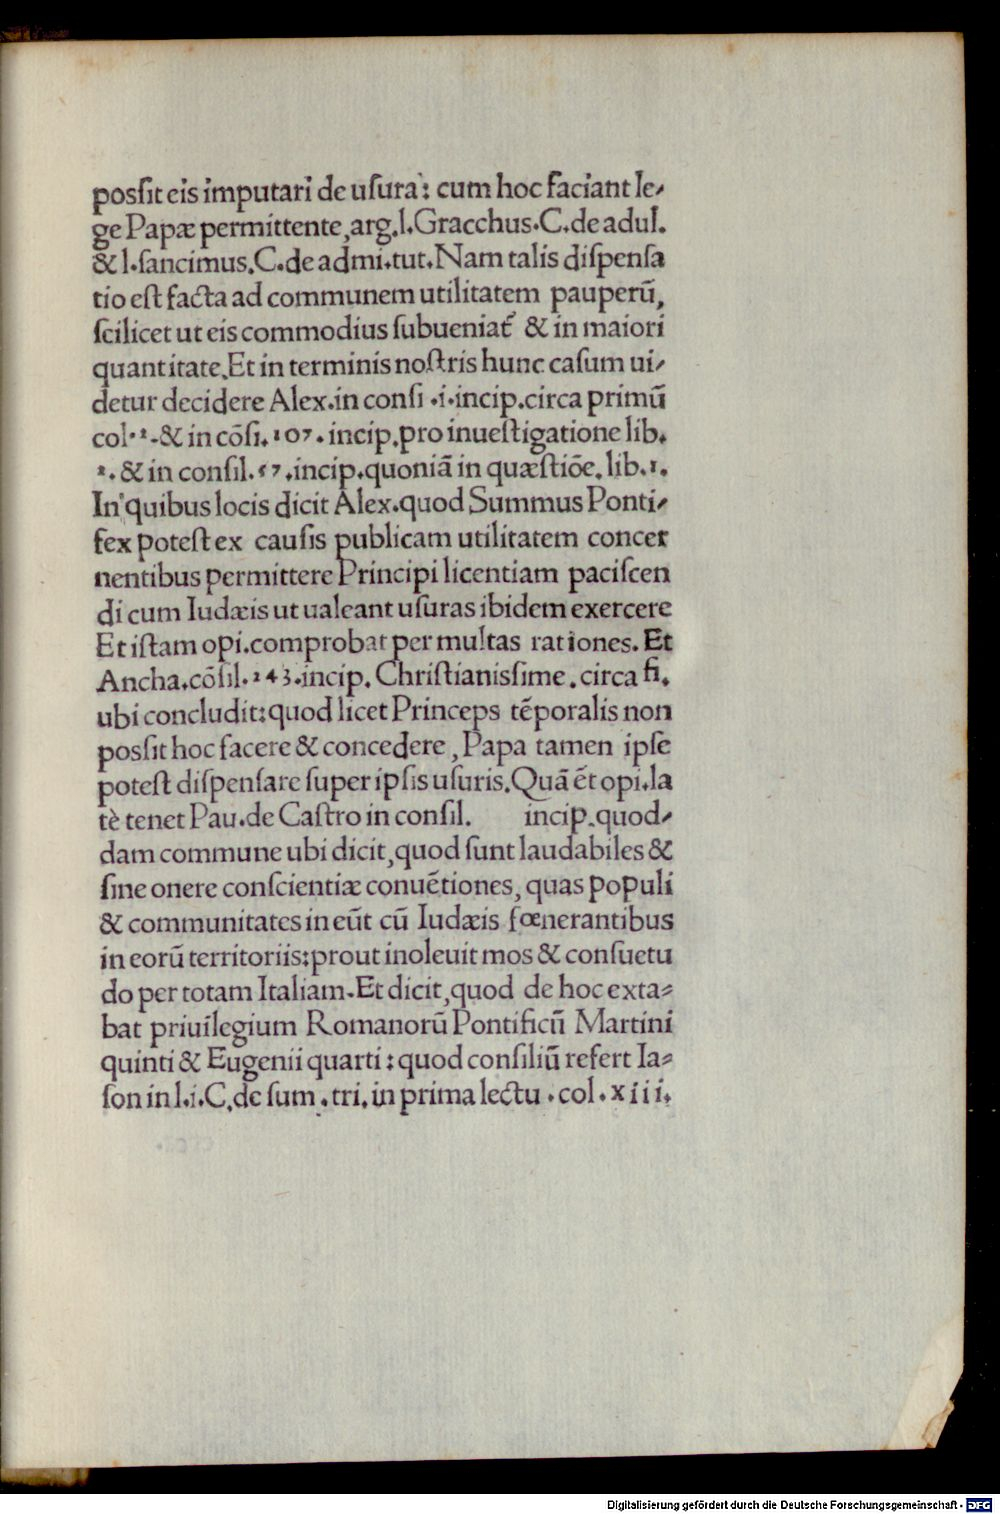 possit eis imputari de uſura: cum hoc faciant le-
ge Papæ permittente, arg.l.Gracchus.C.de adul.
& l.ſancimus.C.de admi.tut.Nam talis diſpenſa
tio eſt facta ad communem utilitatem pauperū,
ſcilicet ut eis commodius ſubueniat̄ & in maiori
quantitate.Et in terminis noſtris hunc caſum ui-
detur decidere Alex.in conſi .i.incip.circa primū
col.2.& in cōſi.107.incip.pro inueſtigatione lib.
2.& in conſil.67.incip.quoniā in quæſtiōe.lib.1.
In quibus locis dicit Alex.quod Summus Ponti-
fex poteſt ex cauſis publicam utilitatem concer
nentibus permittere Principi licentiam paciſcen
di cum Iudæis ut ualeant uſuras ibidem exercere
Et iſtam opi.comprobat per multas rationes. Et
Ancha.cōſil.243.incip. Chriſtianiſſime.circa fi.
ubi concludit:quod licet Princeps tēporalis non
poſſit hoc facere & concedere, Papa tamen ipſe
poteſt diſpenſare ſuper ipſis uſuris.Quā ēt opi.la
tè tenet Pau.de Caſtro in conſil. incip.quod-
dam commune ubi dicit,quod ſunt laudabiles &
ſine onere conſcientiæ conuētiones, quas populi
& communitates in eūt cū Iudæis fœnerantibus
in eorū territoriis:prout inoleuit mos & conſuetu
do per totam Italiam.Et dicit,quod de hoc exta-
bat priuilegium Romanorū Pontificū Martini
quinti & Eugenii quarti : quod conſiliū refert Ia-
ſon in l.i.C.de ſum.tri.in prima lectu.col.xiii.
Digitalisierung gefördert durch die Deutsche Forschungsgemeinschaft - DFG